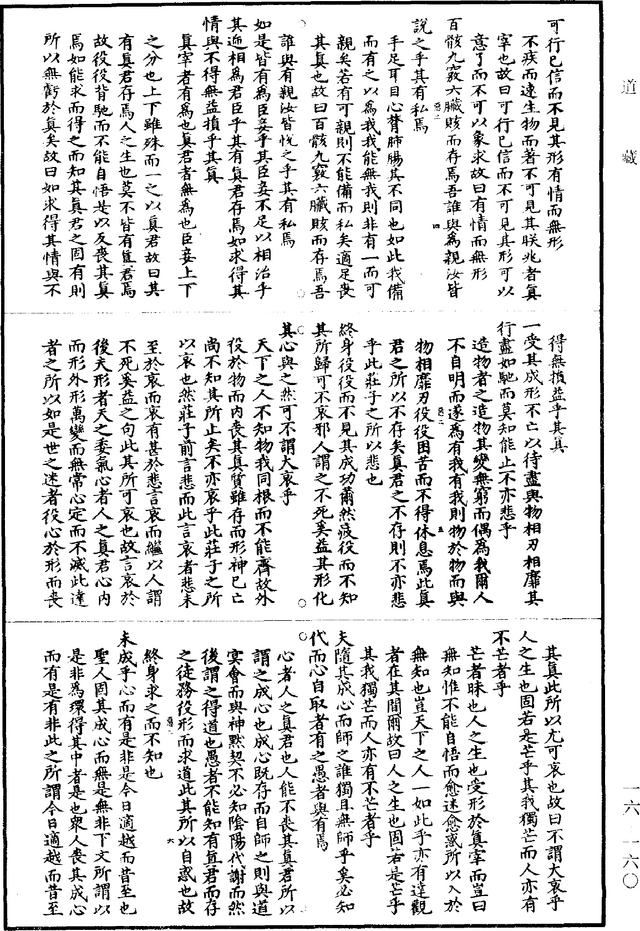 道藏
可行已信而不見其形有情而無形
不疾而速生物而著不可見其朕兆者真
宰也故曰可行已信而不可見其形可以
意了而不可以象求故曰有情而無形
百骸九竅六臟賅而存焉吾誰與爲親汝皆
說之乎其有私焉
手足耳目心膂肺腸其不同也如此我備
而有之以爲我我能無我則非有一而可
親矣若有可親則不能備而私矣適足喪
其真也故曰百骸九竅六臟賅而存焉吾
誰與有親汝皆悅之乎其有私焉
如是皆有爲臣妾乎其臣妾不足以相治乎
其遞相爲君臣乎其有真君存焉如求得其
情與不得無益損乎其真
真宰者有爲也真君者無爲也臣妾上下
之分也上下雖殊而一之以真君故曰其
有真君存焉人之生也莫不皆有真君焉
故役役背馳而不能自悟是以反喪其真
焉如能求而得之而知其真君之固有則
所以無虧於真矣故曰如求得其情與不
得無損益乎其真
一受其成形不亡以待盡與物相刃相靡其
行盡如馳而莫知能止不亦悲乎
造物者之造物其變無窮而偶爲我爾人
不自明而遂爲有我有我則物於物而與
物相靡刃役役困苦而不得休息焉此真
君之所以不存矣真君之不存則不亦悲
乎此莊子之所以悲也
終身役役而不見其成功薾然疲役而不知
其所歸可不哀邪人謂之不死奚益其形化
其心與之然可不謂大哀乎
天下之人不知物我同根而不能齊故外
役於物而內喪其真質雖存而形神已亡
尚不知其所止矣不亦哀乎此莊子之所
以哀也然莊子前言悲而此言哀者悲未
至於哀而哀有甚於悲言哀而繼以人謂
不死奚益之句此其所可哀也故言哀於
後夫形者天之委氣心者人之真君心內
而形外形萬變而無常心定而不滅此達
者之所以如是世之迷者役心於形而喪
其真此所以尤可哀也故曰不謂大哀乎
人之生也固若是芒乎其我獨芒而人亦有
不芒者乎
芒者昧也人之生也受形於真宰而豈曰
無知惟不能自悟而愈迷愈惑所以入於
無知也豈天下之人一如此乎亦有達觀
者在其間爾故曰人之生也固若是芒乎
其我獨芒而人亦有不芒者乎
夫隨其成心而師之誰獨且無師乎奚必知
代而心自取者有之愚者與有焉
心者人之真君也人能不喪其真君所以
謂之成心也成心既存而自師之則與道
宴會而與神默契不必知陰陽代謝而然
後謂之得道也愚者不能知有真君而存
之徒務役形而求道此其所以自惑也故
終身求之而不知也
未成乎心而有是非是今日適越而昔至也
聖人因其成心而無是無非下文所謂以
是非爲環得其中者是也衆人喪其成心
而有是有非此之所謂今日適越而昔至
一六 一六〇